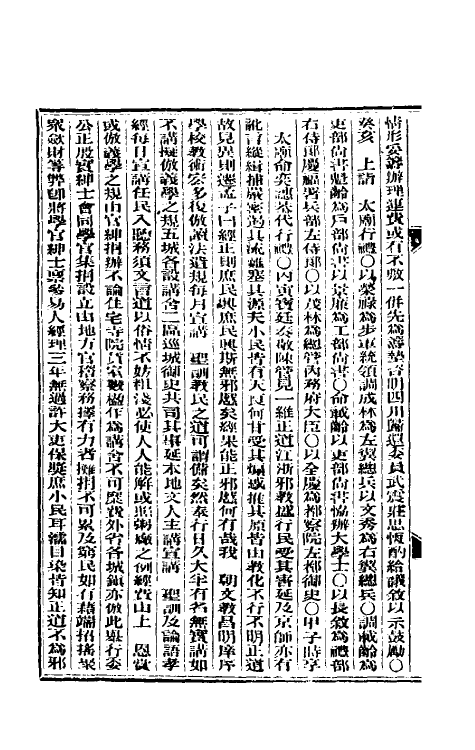 情形妥籌辦理運費或有不敷一併先為籌墊咨明四川歸還委員武震莊思恆酌給議敘以示鼓勵○
癸亥　上詣　太廟行禮○以榮祿為步軍統領調成林為左翼總兵以文秀為右翼總兵○調載齡為
吏部尚書魁齡為戶部尚書以景廉為工部尚書○命載齡以吏部尚書協辦大學士○以長敘為禮部
右侍郎慶福署兵部左侍郎○以茂林為總管內務府大臣○以全慶為都察院左都御史○甲子時享
太廟命奕譓恭代行禮○丙寅寶廷奏敬陳管見一維正道江浙邪教盛行民受其害延及京師亦有
訛言縱緝捕嚴密遏其流難塞其源夫小民皆有天良何甘受其煽惑推其原皆由教化不行不明正道
故見異則遷孟子曰經正則庶民興庶民興斯無邪慝矣經果能正邪慝何有哉我　朝文教昌明庠序
學校教術宏多復倣讀法遺規每月宣講　聖訓教民之道可謂備矣然奉行日久大半有名無實講如
不講擬倣義學之規五城各設講舍二區巡城御史共司其事延本地文人主講宣講　聖訓及論語孝
經每日宣講任民入聽務須文言道以俗情不妨粗淺必使人人能解或照粥廠之例經費由上　恩賞
或倣義學之規由官紳捐辦不論住宅寺院賃室數楹作為講舍不可糜費外省各城鎮亦倣此舉行委
公正殷實紳士會同學官集捐設立由地方官稽察務擇有力者攤捐不可累及窮民如有藉端招搖聚
眾斂財等弊即將學官紳士嚴參易人經理三年無過許大吏保獎庶小民耳濡目染皆知正道不為邪